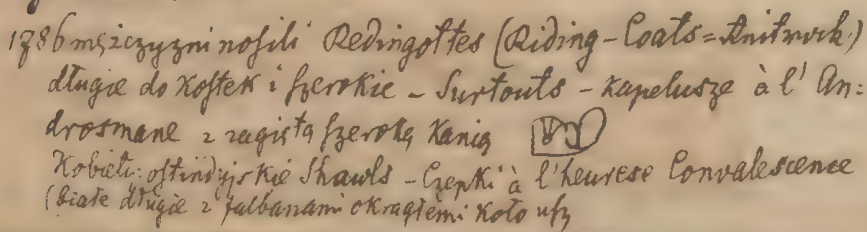 1786 mężczyzni nosili Redingottes (Riding-Coats=Knitrock)
długie do Kostek i szerokie - Surtouts - Kapelusze à l' An:
drosmane z zagiętą szeroką Kanią
Kobiety: ostindyjskie Shawls - Czepki à l'heurese Convalescence
(białe długie z falbanami okrągłemi koło usz